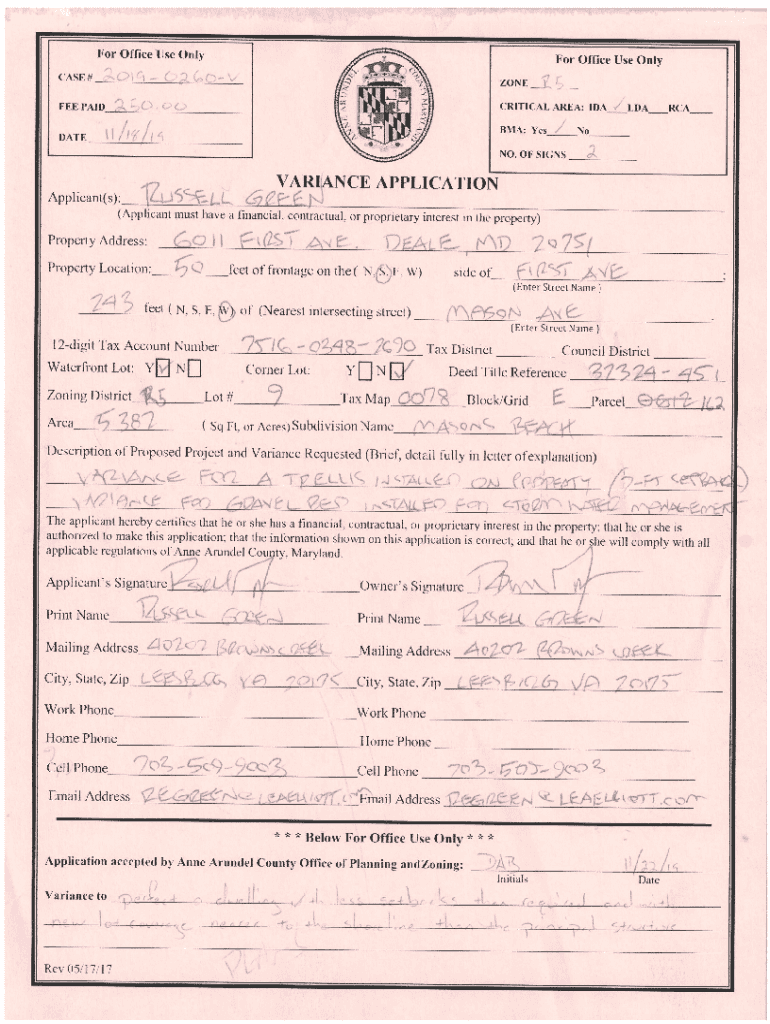 For Office Use Only
CASE # 2019-0260-V
FEE PAID 250.00
DATE 11/18/19
ANNE ARUNDEL COUNTY, MARYLAND
For Office Use Only
ZONE R5
CRITICAL AREA: IDA ✓ LDA RCA
BMA: Yes ✓ No
NO. OF SIGNS 2
VARIANCE APPLICATION
Applicant(s): RUSSELL GREEN
(Applicant must have a financial, contractual, or proprietary interest in the property)
Property Address: 6011 FIRST AVE. DEALE, MD 20751
Property Location: 50 feet of frontage on the ( N, S, E, W) side of FIRST AVE ;
(Enter Street Name )
243 feet ( N, S, E, W) of (Nearest intersecting street) MASON AVE
(Enter Street Name )
12-digit Tax Account Number 7516-0348-7690 Tax District Council District
Waterfront Lot: Y ✓ N Corner Lot: Y N ✓ Deed Title Reference 32324-451
Zoning District R5 Lot # 9 Tax Map 0078 Block/Grid E Parcel 162
Area 5387 ( Sq Ft, or Acres) Subdivision Name MASONS BEACH
Description of Proposed Project and Variance Requested (Brief, detail fully in letter of explanation)
VARIANCE FOR A TRELLIS INSTALLED ON PROPERTY (7-FT SETBACK)
VARIANCE FOR GRAVEL BED INSTALLED FOR STORM WATER MANAGEMENT
The applicant hereby certifies that he or she has a financial, contractual, or proprietary interest in the property; that he or she is
authorized to make this application; that the information shown on this application is correct; and that he or she will comply with all
applicable regulations of Anne Arundel County, Maryland.
Applicant's Signature Owner's Signature
Print Name RUSSELL GREEN Print Name RUSSELL GREEN
Mailing Address 40202 BROWNS CREEK Mailing Address 40202 BROWNS CREEK
City, State, Zip LEESBURG VA 20175 City, State, Zip LEESBURG VA 20175
Work Phone Work Phone
Home Phone Home Phone
Cell Phone 703-509-9003 Cell Phone 703-509-9003
Email Address REGREEN@LEAELLIOTT.COM Email Address REGREEN@LEAELLIOTT.COM
* * * Below For Office Use Only * * *
Application accepted by Anne Arundel County Office of Planning and Zoning: DAB 11/22/19
Initials Date
Variance to perfect a dwelling with less setbacks than required and with
new lot coverage nearer to the shoreline than the principal structure
Rev 05/17/17